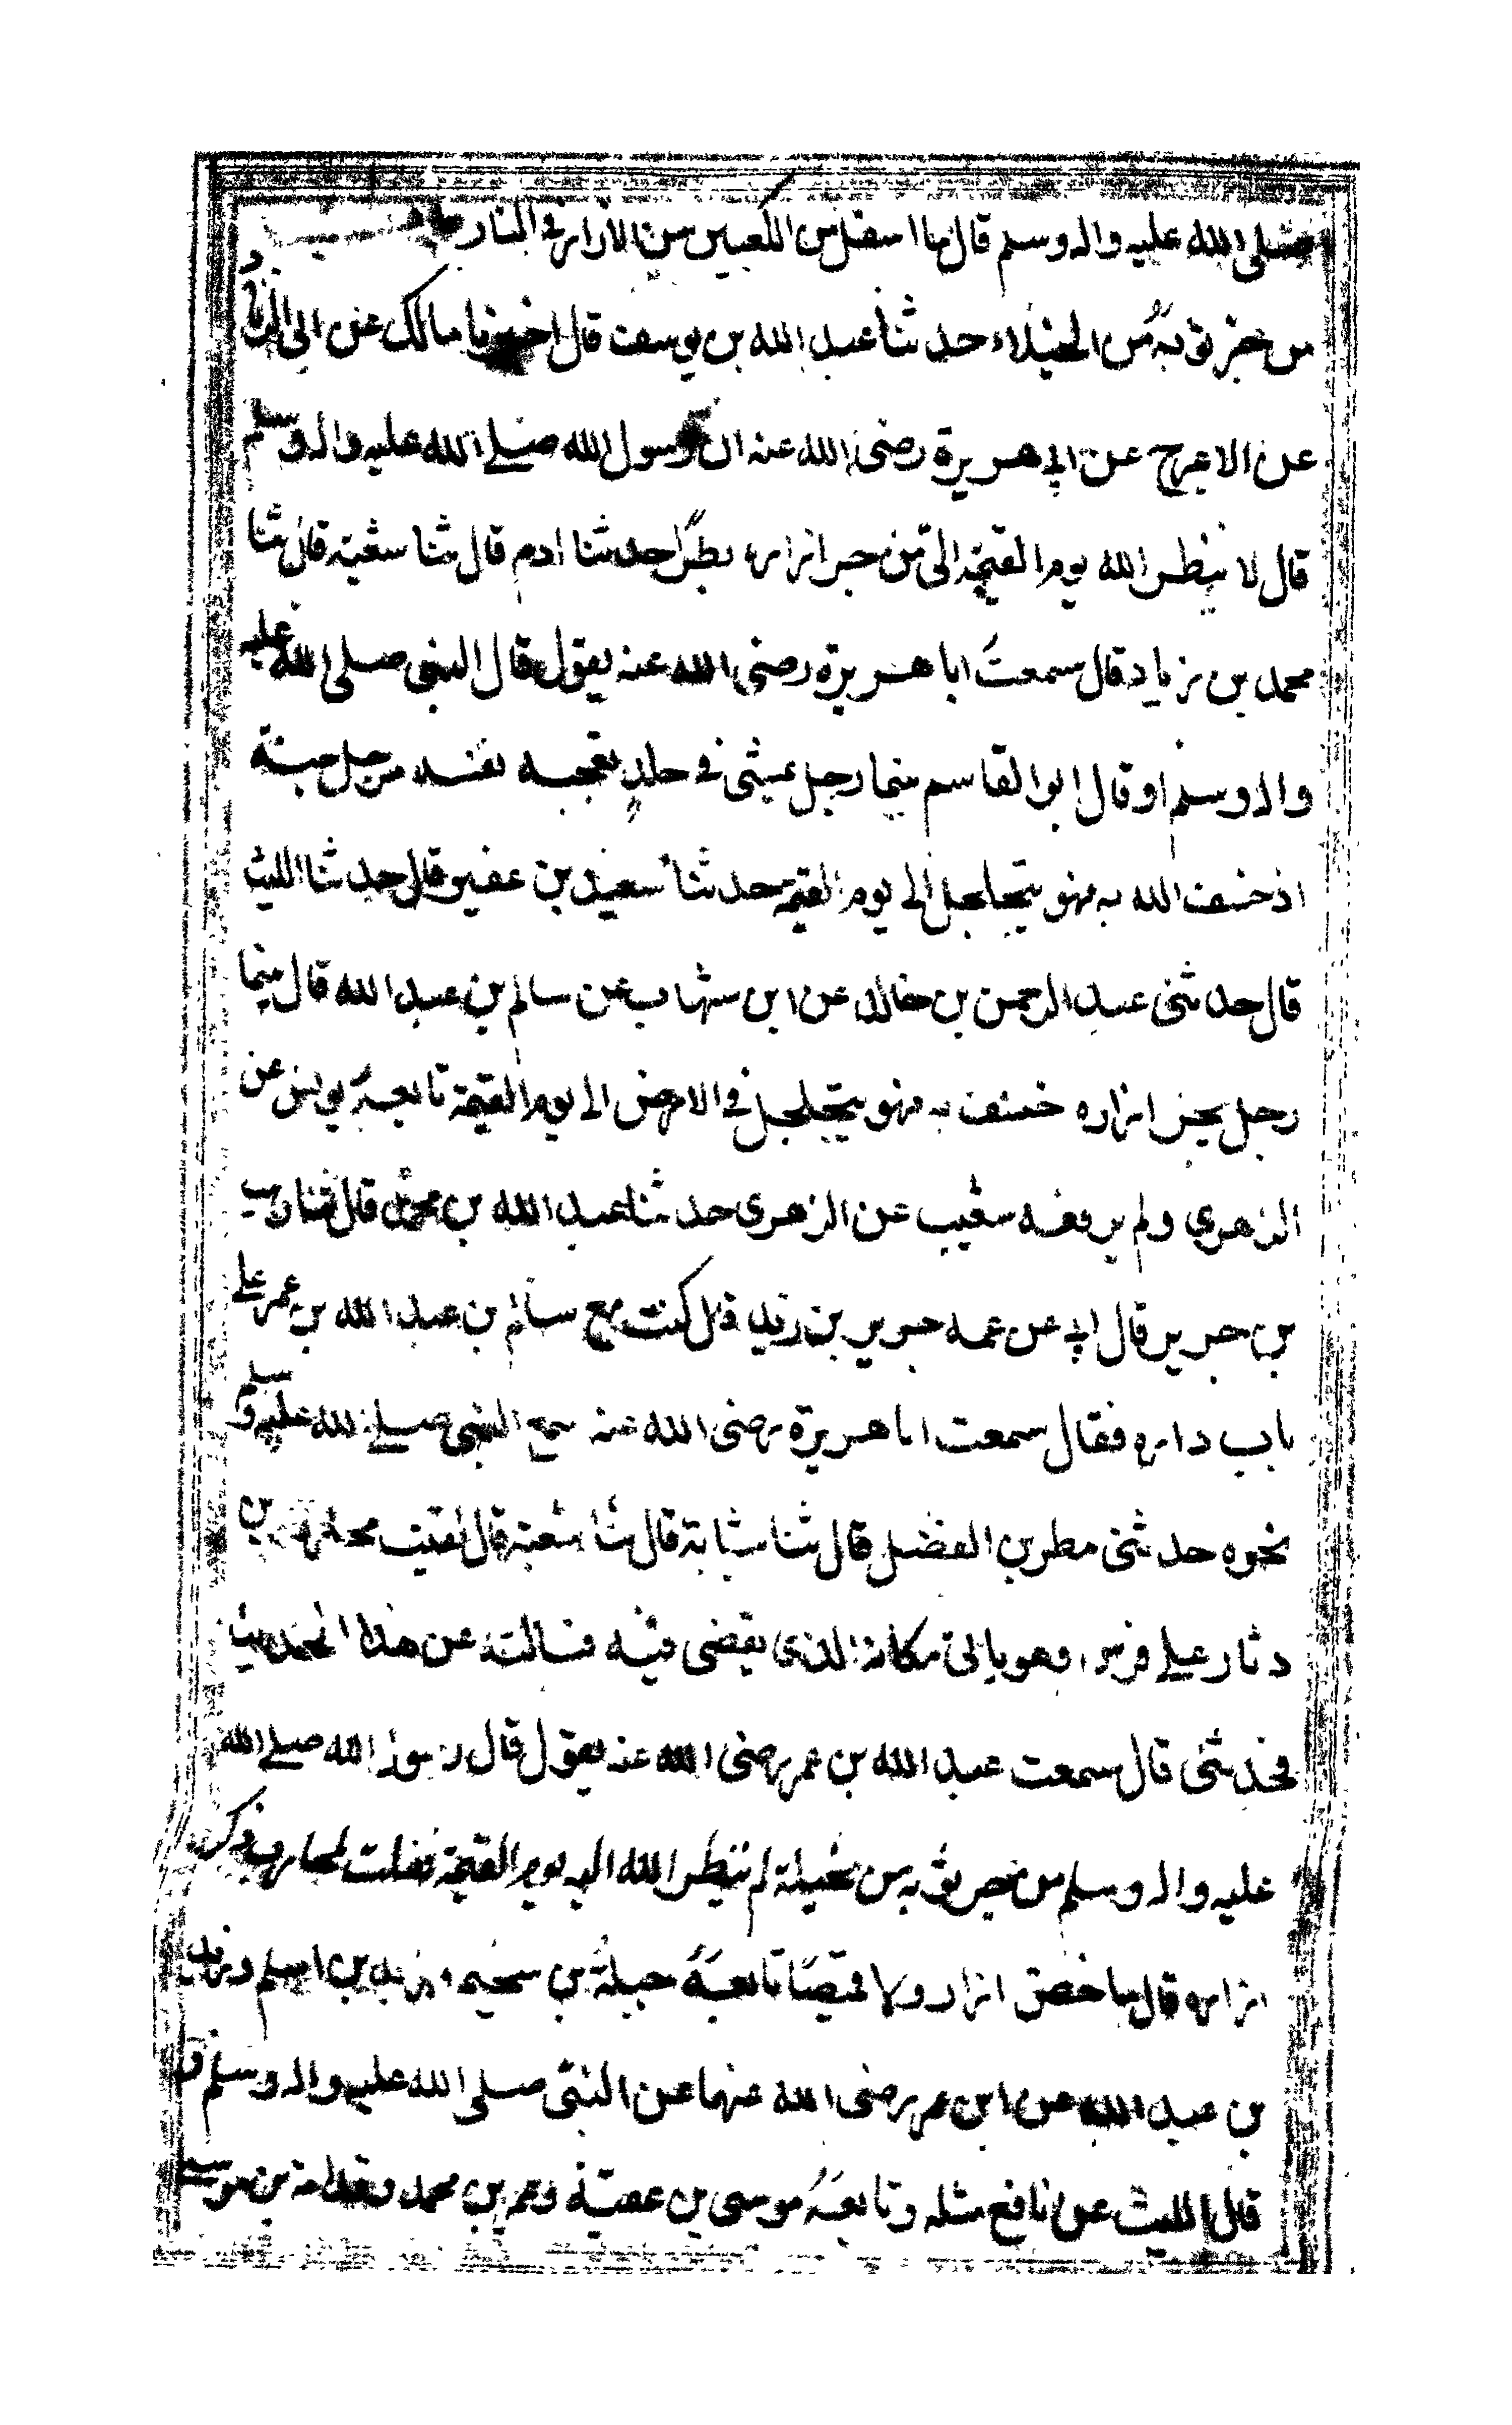 صلى الله عليه واله وسلم قال ما اسفل من الكعبين من الازار فى النار باب
من جر ثوبه من الخيلاء حدثنا عبد الله بن يوسف قال اخبرنا مالك عن ابى الزناد
عن الاعرج عن ابى هريرة رضى الله عنه ان رسول الله صلى الله عليه واله وسلم
قال لا ينظر الله يوم القيمة الى من جر ازاره بطرا حدثنا ادم قال ثنا شعبة قال ثنا
محمد بن زياد قال سمعت ابا هريرة رضى الله عنه يقول قال النبى صلى الله عليه
واله وسلم او قال ابو القاسم بينما رجل يمشى فى حلة تعجبه نفسه مرجل جمته
اذ خسف الله به فهو يتجلجل الى يوم القيمة حدثنا سعيد بن عفير قال حدثنا الليث
قال حدثنى عبد الرحمن بن خالد عن ابن شهاب عن سالم بن عبد الله قال بينما
رجل يجر ازاره خسف به فهو يتجلجل فى الارض الى يوم القيمة تابعه يونس عن
الزهرى ولم يرفعه شعيب عن الزهرى حدثنا عبد الله بن محمد قال ثنا وهب
بن جرير قال ابى عن عمه جرير بن زيد قال كنت مع سالم بن عبد الله بن عمر على
باب داره فقال سمعت ابا هريرة رضى الله عنه سمع النبى صلى الله عليه وسلم
نحوه حدثنى مطر بن الفضل قال ثنا شبابة قال ثنا شعبة قال لقيت محارب بن
دثار على فرس وهو ياتى مكانه الذى يقضى فيه فسالته عن هذا الحديث
فحدثنى قال سمعت عبد الله بن عمر رضى الله عنه يقول قال رسول الله صلى الله
عليه واله وسلم من جر ثوبه من مخيلة لم ينظر الله اليه يوم القيمة فقلت لمحارب اذكر
ازاره قال ما خص ازار ولا قميصا تابعه جبلة بن سحيم وزيد بن اسلم وزيد
بن عبد الله عن ابن عمر رضى الله عنهما عن النبى صلى الله عليه واله وسلم و
قال الليث عن نافع مثله وتابعه موسى بن عقبة وعمر بن محمد وقدامة بن موسى